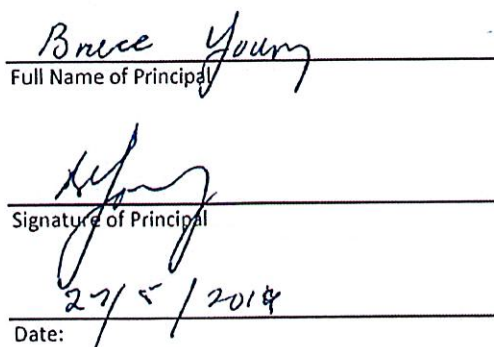 Bruce Young
Full Name of Principal
Signature of Principal
27/5/
Date: